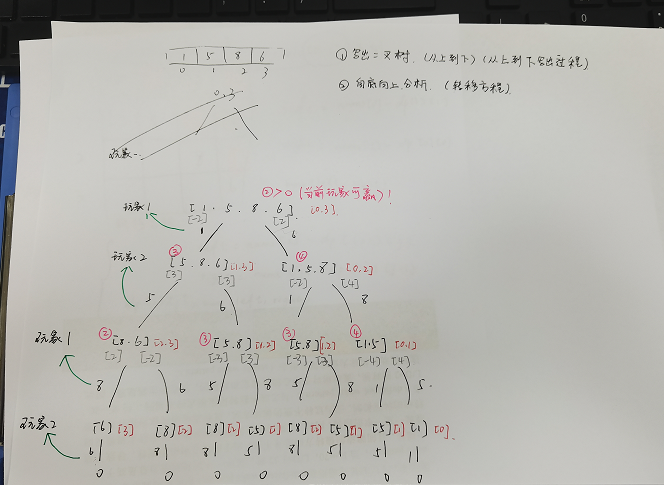 1 5 8 6
0 1 2 3
① 写出二叉树. (从上到下) (从上到下写出过程)
② 自底向上分析. (转移方程)
0,3
玩家一
② > 0 (当前玩家可赢)!
玩家1 [1.5.8.6] [0.3]
[-2] [2]
1 6
玩家2 ③ [5.8.6] [1.3] ④ [1.5.8] [0.2]
[3] [3] [-2] [4]
5 6 1 8
玩家1 ② [8.6] [2.3] ③ [5.8] [1.2] ③ [5.8] [1.2] ④ [1.5] [0.1]
[2] [-2] [-3] [3] [-3] [3] [-4] [4]
8 6 5 8 5 8 1 5.
玩家2 [6] [3] [8] [2] [8] [2] [5] [1] [8] [2] [5] [1] [5] [1] [1] [0].
6 8 8 5 8 5 5 1
0 0 0 0 0 0 0 0